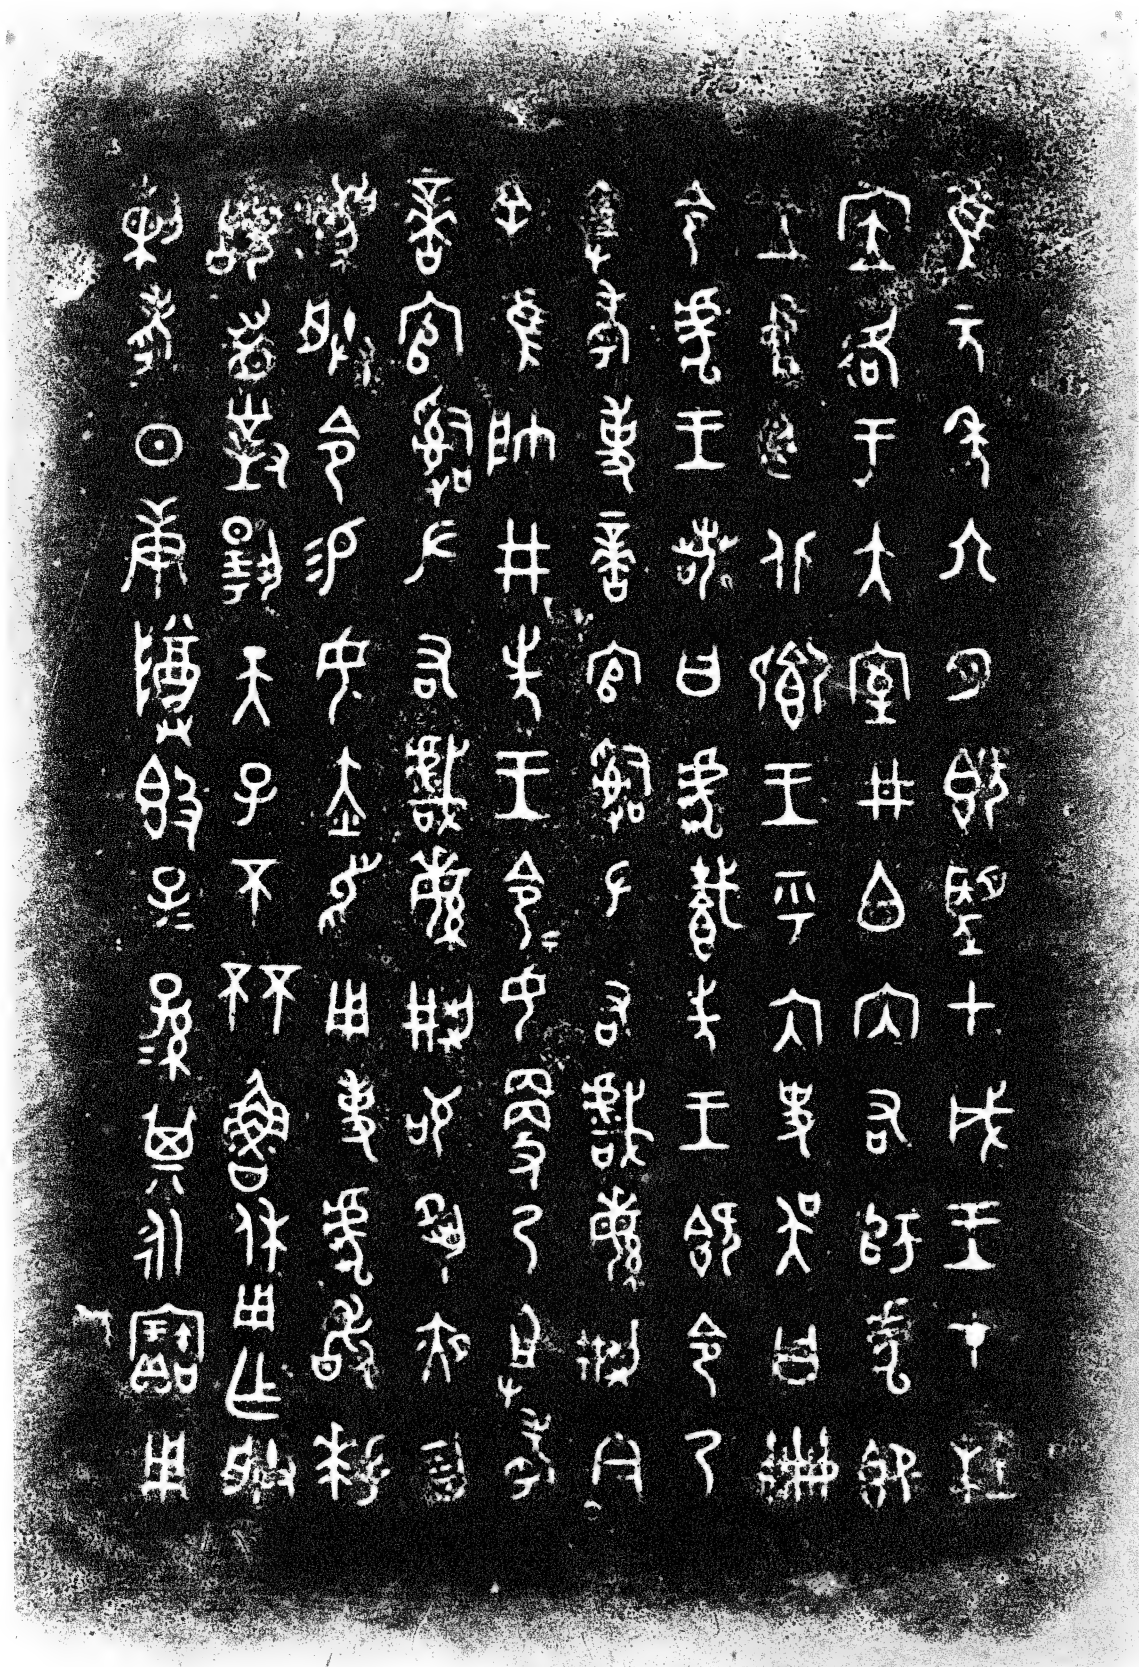 隹元年六月既朢甲戌王才杜
㡴各于大室井白内右師虎即
立中廷北鄉王乎内史吳曰冊
令虎王若曰虎𩛥先王既令乃
祖考事啻官𤔲左右戲緐荊今
隹帥井先王令=女更乃祖考
啻官𤔲左右戲緐荊敬夙夜勿
灋朕令易女赤舄用事虎敢拜
𩒨首對揚天子不㔻魯休用乍朕
剌考日庚尊𣪘子=孫=其永寶用